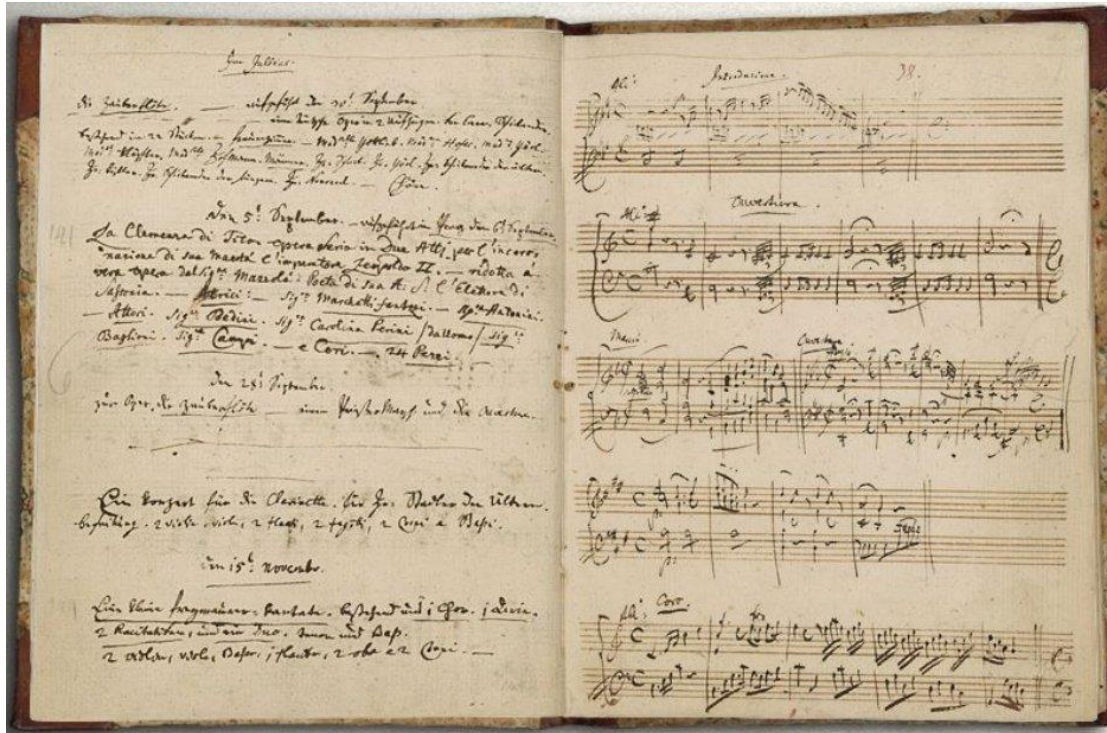 Im Jullius.
die Zauberflöte. — aufgeführt den 30t September.
eine teutsche Oper in 2 Aufzügen. von Eman. Schikaneder.
bestehend in 22 Stücken. — Frauenzimer. — Mad:selle Gottlieb. Mad:me Hofer. Mad:me Görl.
Mad:me Klöpfler. Mad:selle Hofmann. Männer. Hr: Schack. Hr: Görl. Hr: Schikaneder der ältere.
Hr: Kistler. Hr: Schikaneder der Jüngere. Hr: Nouseul. — Chöre.
Den 5t September. — aufgeführt in Prag den 6t September.
La Clemenza di Tito. opera Seria in Due Atti. per l'incoro-
nazione di sua Maestà l'imperatore Leopoldo II. — ridotta a
vera opera dal Sigre Mazzolà. Poeta di sua A: S: l'Elettore di
Sassonia. — Attrici: — Sigra Marchetti fantozi. — Sigra Antonini.
— Attori. Sigre Bedini. Sigra Carolina Perini /da Uomo/ Sigre
Baglioni. Sigre Campi. — e Cori. — 24 Pezzi.
Den 28t September.
zur Oper, die Zauberflöte — einen Priester Marsch und die Ouverture.
Ein Konzert für die Clarinette. für Hr: Stadler den Ältern.
begleitung. 2 violini, viole, 2 flauti, 2 fagotti, 2 Corni e Baßi.
den 15t Novembr.
Eine kleine freymaurer-Kantate. bestehend aus 1 Chor. 1 Aria.
2 Recitativen, und ein Duo. tenor und Baß.
2 violini, viole, Baßo, 1 flauto, 2 oboe e 2 Corni. —
141
38.
All:o Introduzione.
All:o Ouvertura.
Marcia Ouverture
All:o Coro.